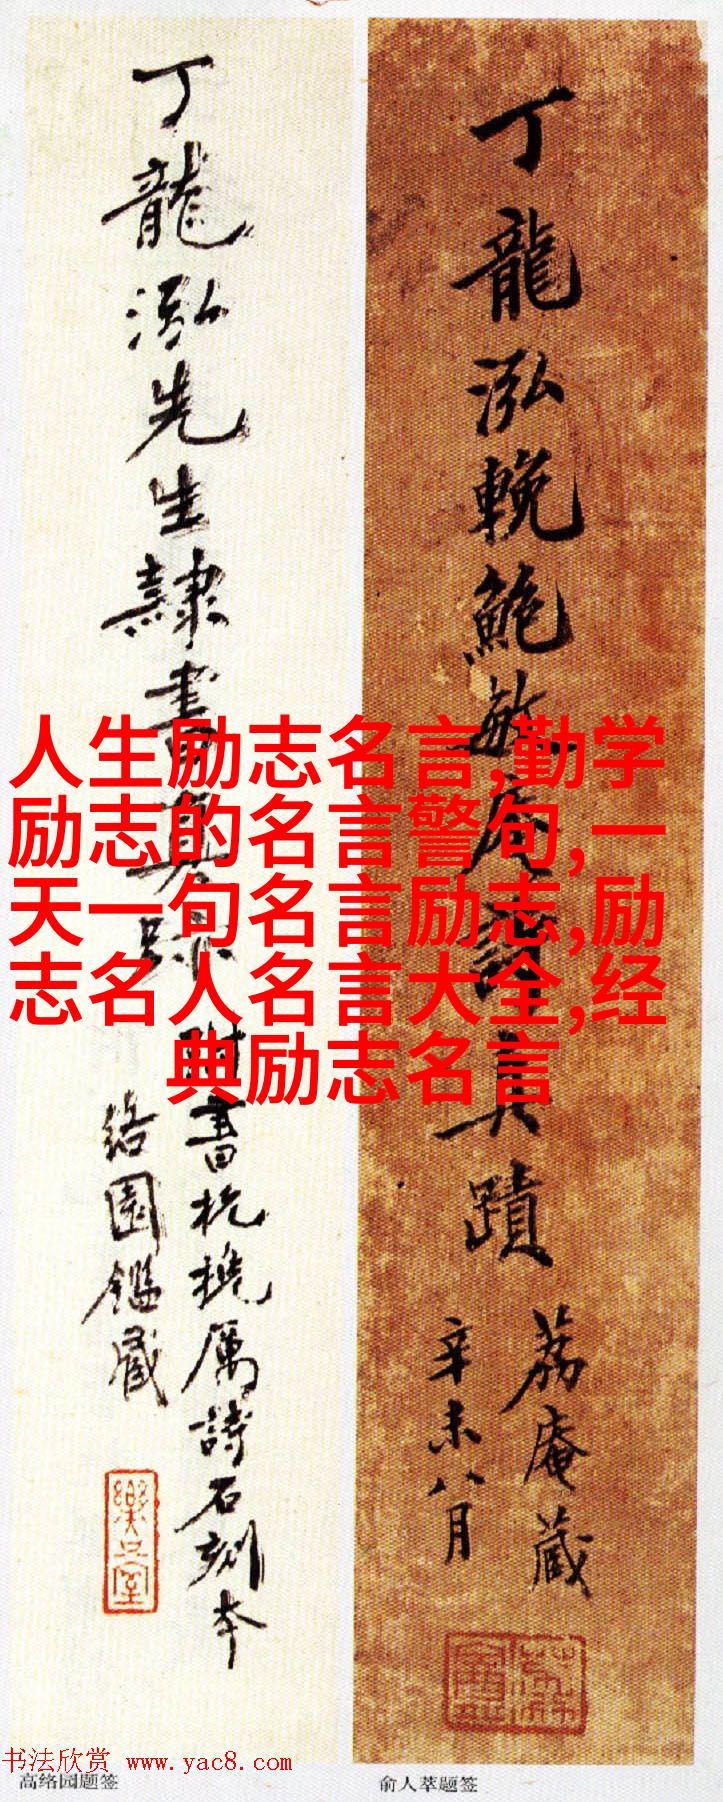 丁龍泓先生隸書真跡
附書杭櫋厲詩石刻本
絡園鑑藏
樂只室
丁龍泓輓鮑敏庵詩真蹟
荔庵藏
辛未八月
人生励志名言,勤学
励志的名言警句,一
天一句名言励志,励
志名人名言大全,经
典励志名言
书法欣赏 www.yac8.com
高络园题签
俞人萃题签